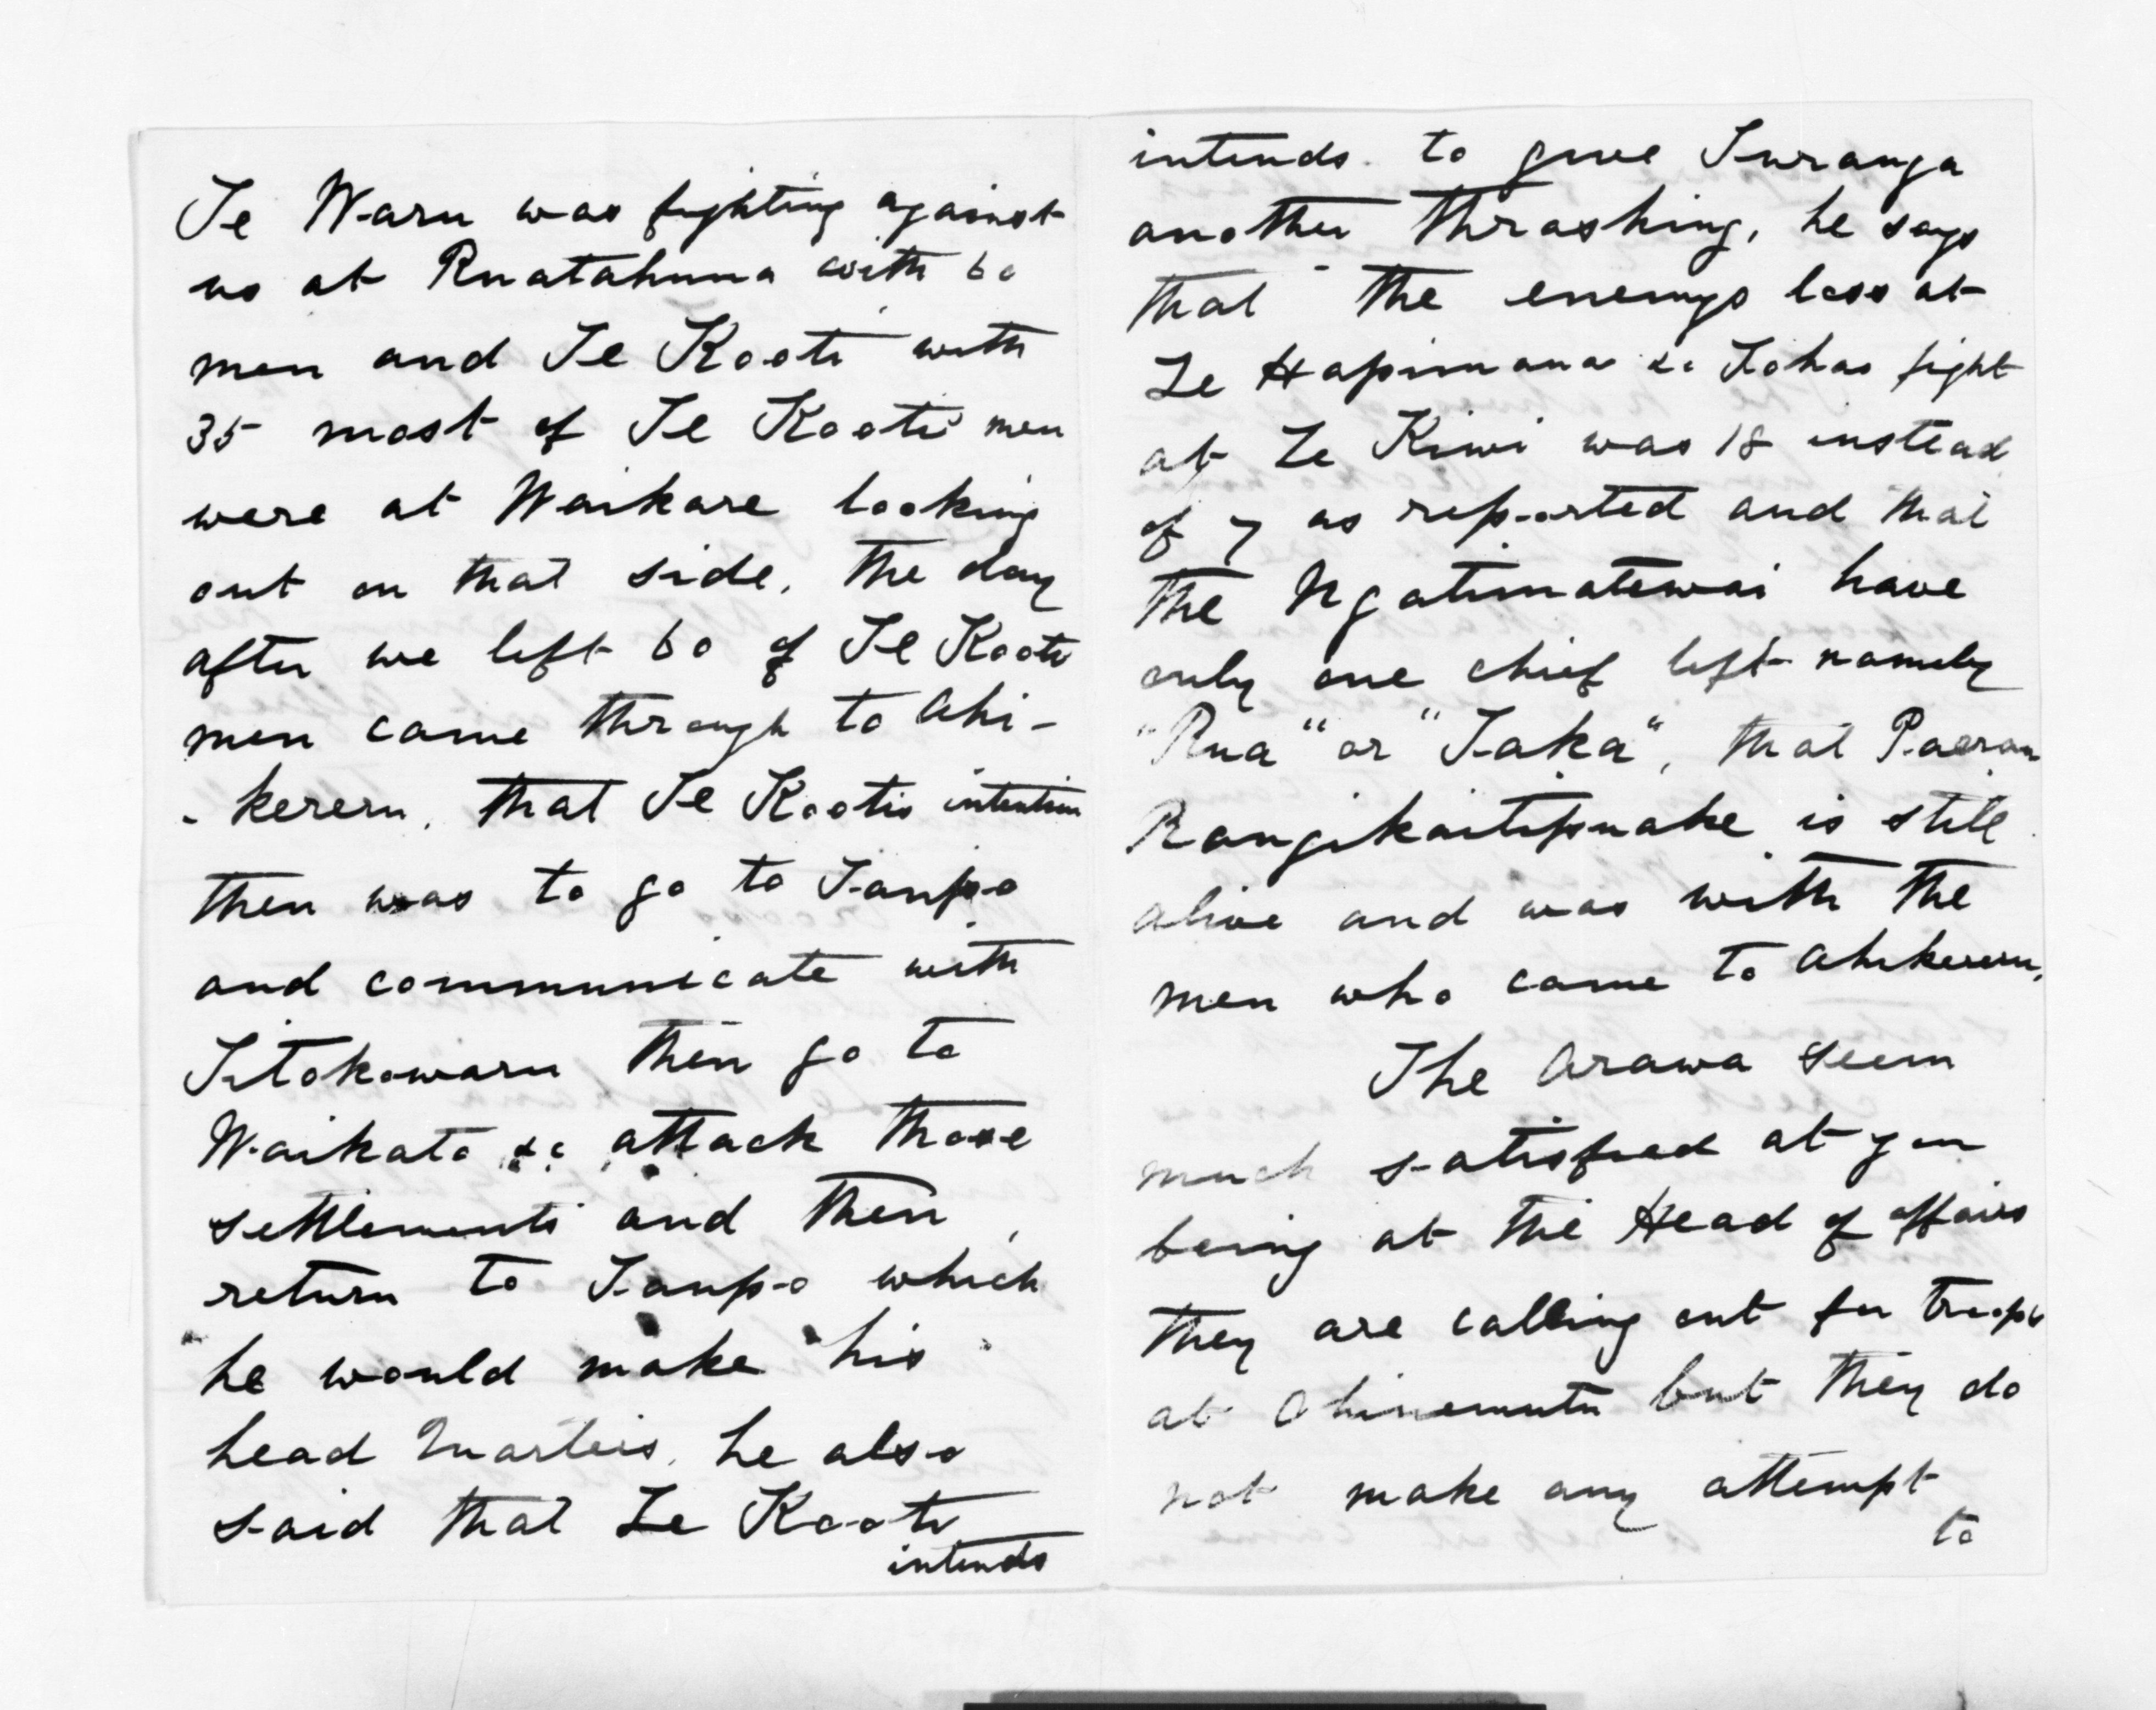 Te Waru was fighting against
us at Ruatahuna with 60
men and Te Kooti with
35 most of Te Kootis men
were at Waikare looking
out on that side. The day
after we left 60 of Te Kootis
men came through to Ahi-
-kereru. That Te Kootis intention
then was to go to Taupo
and communicate with
Titokowaru then go to
Waikato &c attack those
settlements and then
return to Taupo which
he would make his
head Quarters. he also
said that Te Kooti
intends
intends to give Turanga
another thrashing, he says
that the enemys loss at
Te Hapimana &c Tohas fight
at Te Kiwi was 18 instead
of 7 as reported and that
the Ngatimatewai have
only one chief left namely
"Rua" or "Taka", that Paerau
Rangikaitipuake is still
alive and was with the
men who came to Ahikereru.
The Arawa seem
much satisfied at you
being at the Head of affairs
they are calling out for troops
at Ohinemutu but they do
not make any attempt
to